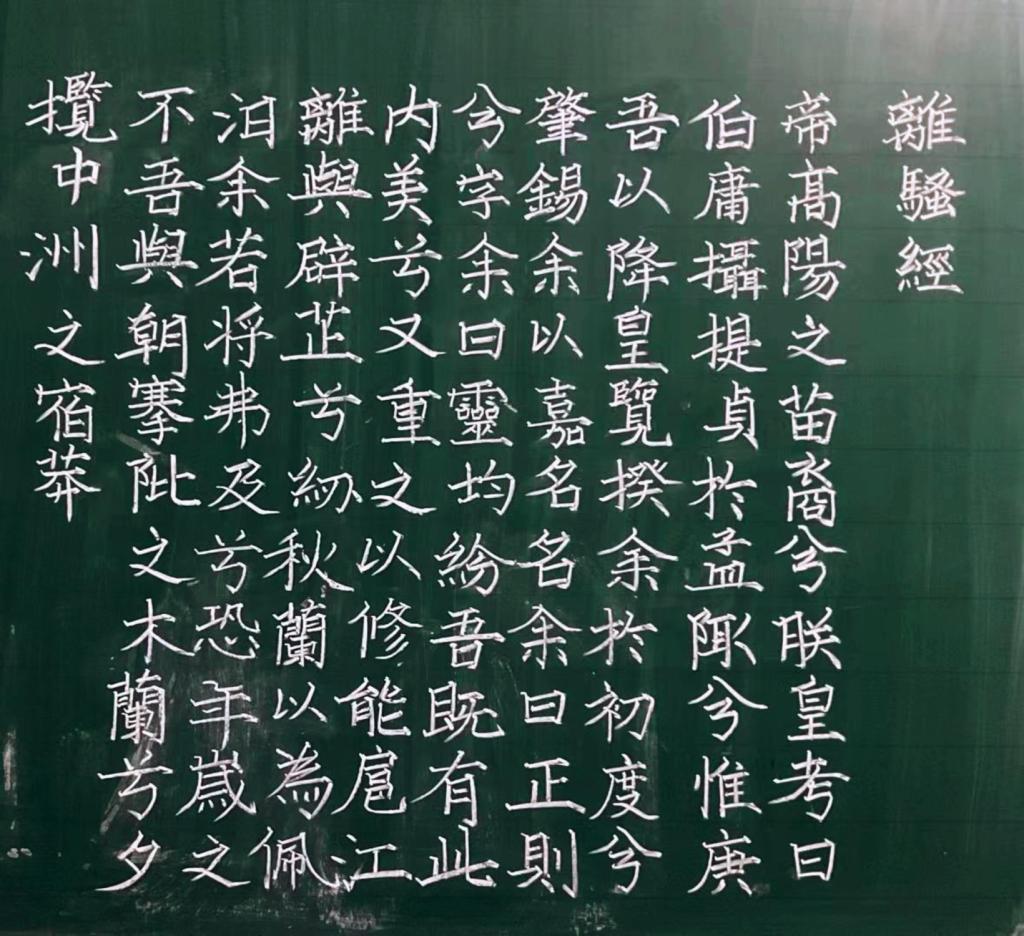 離騷經
帝高陽之苗裔兮朕皇考曰
伯庸攝提貞於孟陬兮惟庚
吾以降皇覽揆余於初度兮
肇錫余以嘉名名余曰正則
兮字余曰靈均紛吾既有此
內美兮又重之以修能扈江
離與辟芷兮紉秋蘭以為佩
汩余若將弗及兮恐年歲之
不吾與朝搴阰之木蘭兮夕
攬中洲之宿莽